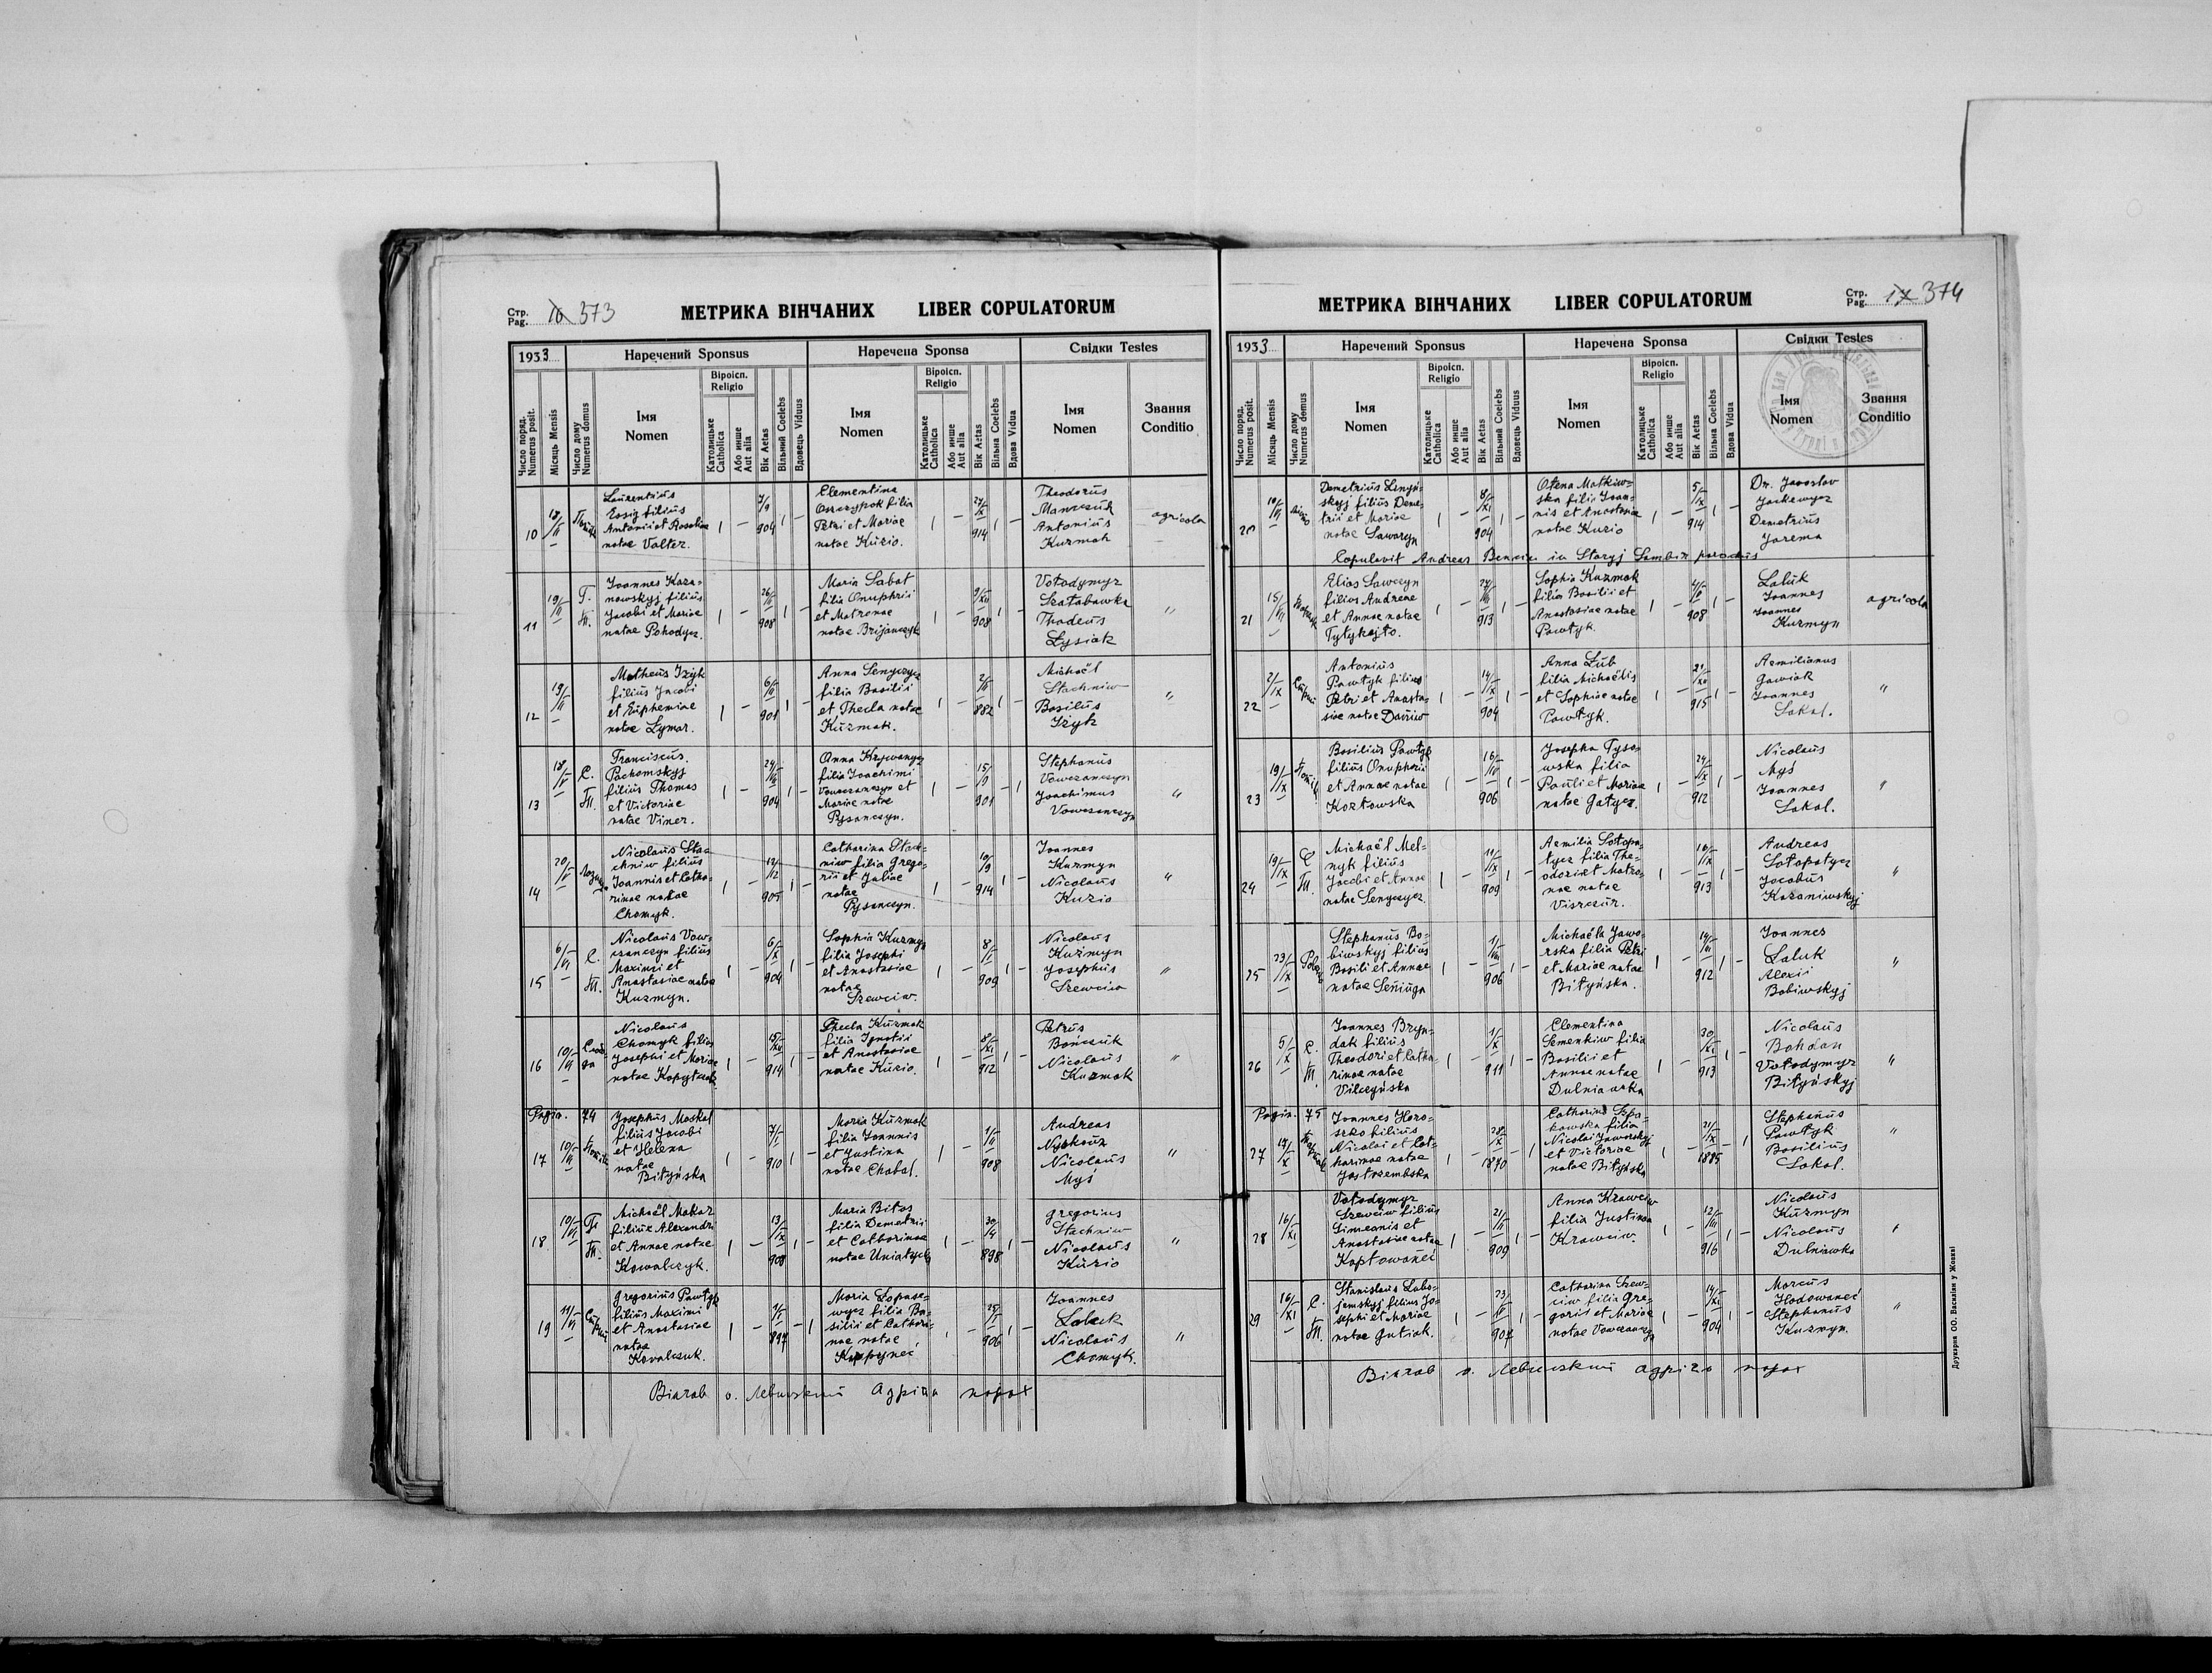 Стр.
Pag. 16 373
МЕТРИКА ВІНЧАНИХ LIBER COPULATORUM
1933
Наречений Sponsus
Наречена Sponsa
Свідки Testes
Число поряд.
Numerus posit.
Місяць Mensis
Число дому
Numerus domus
Імя
Nomen
Віроісп.
Religio
Католицьке
Catholica
Або инше
Aut alia
Вік Aetas
Вільний Coelebs
Вдовець Viduus
Імя
Nomen
Віроісп.
Religio
Католицьке
Catholica
Або инше
Aut alia
Вік Aetas
Вільна Coelebs
Вдова Vidua
Імя
Nomen
Звання
Conditio
10
Laurentius
filius
Antonii et Rosaliae
natae Valter.
904
Clementina
Oszczypok filia
Petri et Mariae
natae Kuzio.
914
Theodorus
Manczuk
Antonius
Kuzmak
agricola
11
19/II
Joannes Kaza-
nowskyj filius
Jacobi et Mariae
natae Pohodycz.
26/II
908
Maria Sabat
filia Onuphrii
et Matronae
natae Brijanczyk
9/XII
908
Wołodymyr
Szałabawka
Thadeus
Łysiak
"
12
19/II
Matheus Izyk
filius Jacobi
et Euphemiae
natae Lymar.
6/II
901
Anna Senyczycz
filia Basilii
et Thecla natae
Kuzmak.
2/II
882
Michaël
Stachniw
Basilius
Izyk
"
13
18/V
С. М.
Franciscus
Pachomskyj
filius Thomas
et Victoriae
natae Viner.
904
Anna Krywanycz
filia Joachimi
Vowczanczyn et
Mariae natae
Pysanczyn.
901
Stephanus
Vowczanczyn
Joachimus
Vowczanczyn
"
14
20/V
Nicolaus Sta-
chniw filius
Joannis et Catha-
rinae natae
Chomyk.
12/12
905
Catharina Stach-
niw filia Grego-
rii et Juliae
natae
Pysanczyn.
10/9
914
Joannes
Kuzmyn
Nicolaus
Kuzio
"
15
6/VI
С. М.
Nicolaus Vow-
czanczyn filius
Maximi et
Anastasiae natae
Kuzmyn.
6/X
904
Sophia Kuzmyn
filia Josephi
et Anastasiae
natae
Szewciw.
8/I
909
Nicolaus
Kuzmyn
Josephus
Szewciw
"
16
10/VI
Nicolaus
Chomyk filius
Josephi et Mariae
natae Kopytczak
15/XII
914
Thecla Kuzmak
filia Ignatii
et Anastasiae
natae Kuzio.
8/XI
912
Petrus
Bończuk
Nicolaus
Kuzmak
"
Pagin. 74
17
Josephus Moskal
filius Jacobi
et Helena
natae
Bityńska
7/I
910
Maria Kuzmak
filia Joannis
et Justina
natae Chabal.
1/II
908
Andreas
Nicolaus
Myś
"
18
10/VI
Michaël Makar
filius Alexandri
et Annae natae
Kowalczyk.
13/IX
908
Maria Bitas
filia Demetrii
et Catharinae
natae Uniatycka
30/4
898
Gregorius
Stachniw
Nicolaus
Kuzio
"
19
11/VI
Gregorius Pawłyk
filius Maximi
et Anastasiae
natae
Kovalczuk.
1/I
897
Maria Łopuse-
wycz filia Ba-
silii et Cathari-
nae natae
25/I
906
Joannes
Laluk
Nicolaus
Chomyk.
"
Вінчав о. Левицький Адріян парох
Стр.
Pag. 17 374
МЕТРИКА ВІНЧАНИХ LIBER COPULATORUM
1933
Наречений Sponsus
Наречена Sponsa
Свідки Testes
Число поряд.
Numerus posit.
Місяць Mensis
Число дому
Numerus domus
Імя
Nomen
Віроісп.
Religio
Католицьке
Catholica
Або инше
Aut alia
Вік Aetas
Вільний Coelebs
Вдовець Viduus
Імя
Nomen
Віроісп.
Religio
Католицьке
Catholica
Або инше
Aut alia
Вік Aetas
Вільна Coelebs
Вдова Vidua
Імя
Nomen
Звання
Conditio
20
Demetrius Lenyn-
skyj filius Deme-
trii et Mariae
natae Sawaryn
8/XI
904
Ołena Matkiw-
ska filia Joan-
nis et Anastasiae
natae Kuzio
5/IX
914
Dr. Jaroslav
Jackewycz
Demetrius
Jarema
Copulavit Andreas in Staryj Sambir parochus
21
15/VII
Elias Sawczyn
filius Andreae
et Annae natae
913
Sophia Kuzmak
filia Basilii et
Anastasiae natae
Pawłyk.
908
Laluk
Joannes
Joannes
Kuzmyn
agricola
22
2/IX
Antonius
Pawłyk filius
Petri et Anasta-
siae natae
14/IX
904
Anna Lub
filia Michaëlis
et Sophiae natae
Pawłyk.
21/XII
915
Aemilianus
Gawiak
Joannes
Sokal.
"
23
19/IX
Basilius Pawłyk
filius Onuphrii
et Annae natae
Kozłowska
906
Josepha Tyso-
wska filia
Pauli et Mariae
natae Gałycz.
24/IX
912
Nicolaus
Myś
Joannes
Sokal.
"
24
19/IX
С. М.
Michaël Mel-
nyk filius
Jacobi et Annae
natae Senyczycz
11/IX
909
Aemilia Sołopa-
tycz filia The-
odori et Matro-
nae natae
Viszczur.
16/IX
913
Andreas
Sołopatycz
Jacobus
Kazaniwskyj
"
25
23/IX
Stephanus Bo-
biwskyj filius
Basili et Annae
natae Seniuga
1/VIII
906
Michaëla Jawo-
rska filia Petri
et Mariae natae
Bityńska.
912
Joannes
Laluk
Alexii
Bobiwskyj
"
26
5/X
С. М.
Joannes Bryn-
dak filius
Theodori et Catha-
rinae natae
Vilczyńska
1/X
911
Clementina
Semenkiw filia
Basilii et
Annae natae
Dulniawka
30/XI
913
Nicolaus
Bohdan
Vołodymyr
Bityńskyj
"
Pagin. 75
27
Joannes Horo-
szko filius
Nicolai et Cat-
harinae natae
Jastrzembska
28/X
1870
Catharina Szpa-
kowska filia
Nicolai Jaworskyj
et Victoriae
natae Bityńska
21/IX
1885
Stephanus
Pawłyk
Basilius
Sokal.
"
28
16/XI
Vołodymyr
Szewciw filius
Simeonis et
Anastasiae natae
Kopłowanec
21/II
909
Anna Krawciw
filia Justina
Krawciw.
12/III
916
Nicolaus
Kuzmyn
Nicolaus
Dulniawka
"
29
16/XI
С. М.
Stanislaus Labo-
jemskyj filius Jo-
sephi et Mariae
natae Gutiak.
907
Catharina Szew-
ciw filia Gre-
gorii et Mariae
natae Vowczanczyn
14/XI
904
Marcus
Hodowanec
Stephanus
Kuzmyn.
"
Вінчав о. Левицький Адріян парох
Друкарня ОО. Василіян у Жовкві